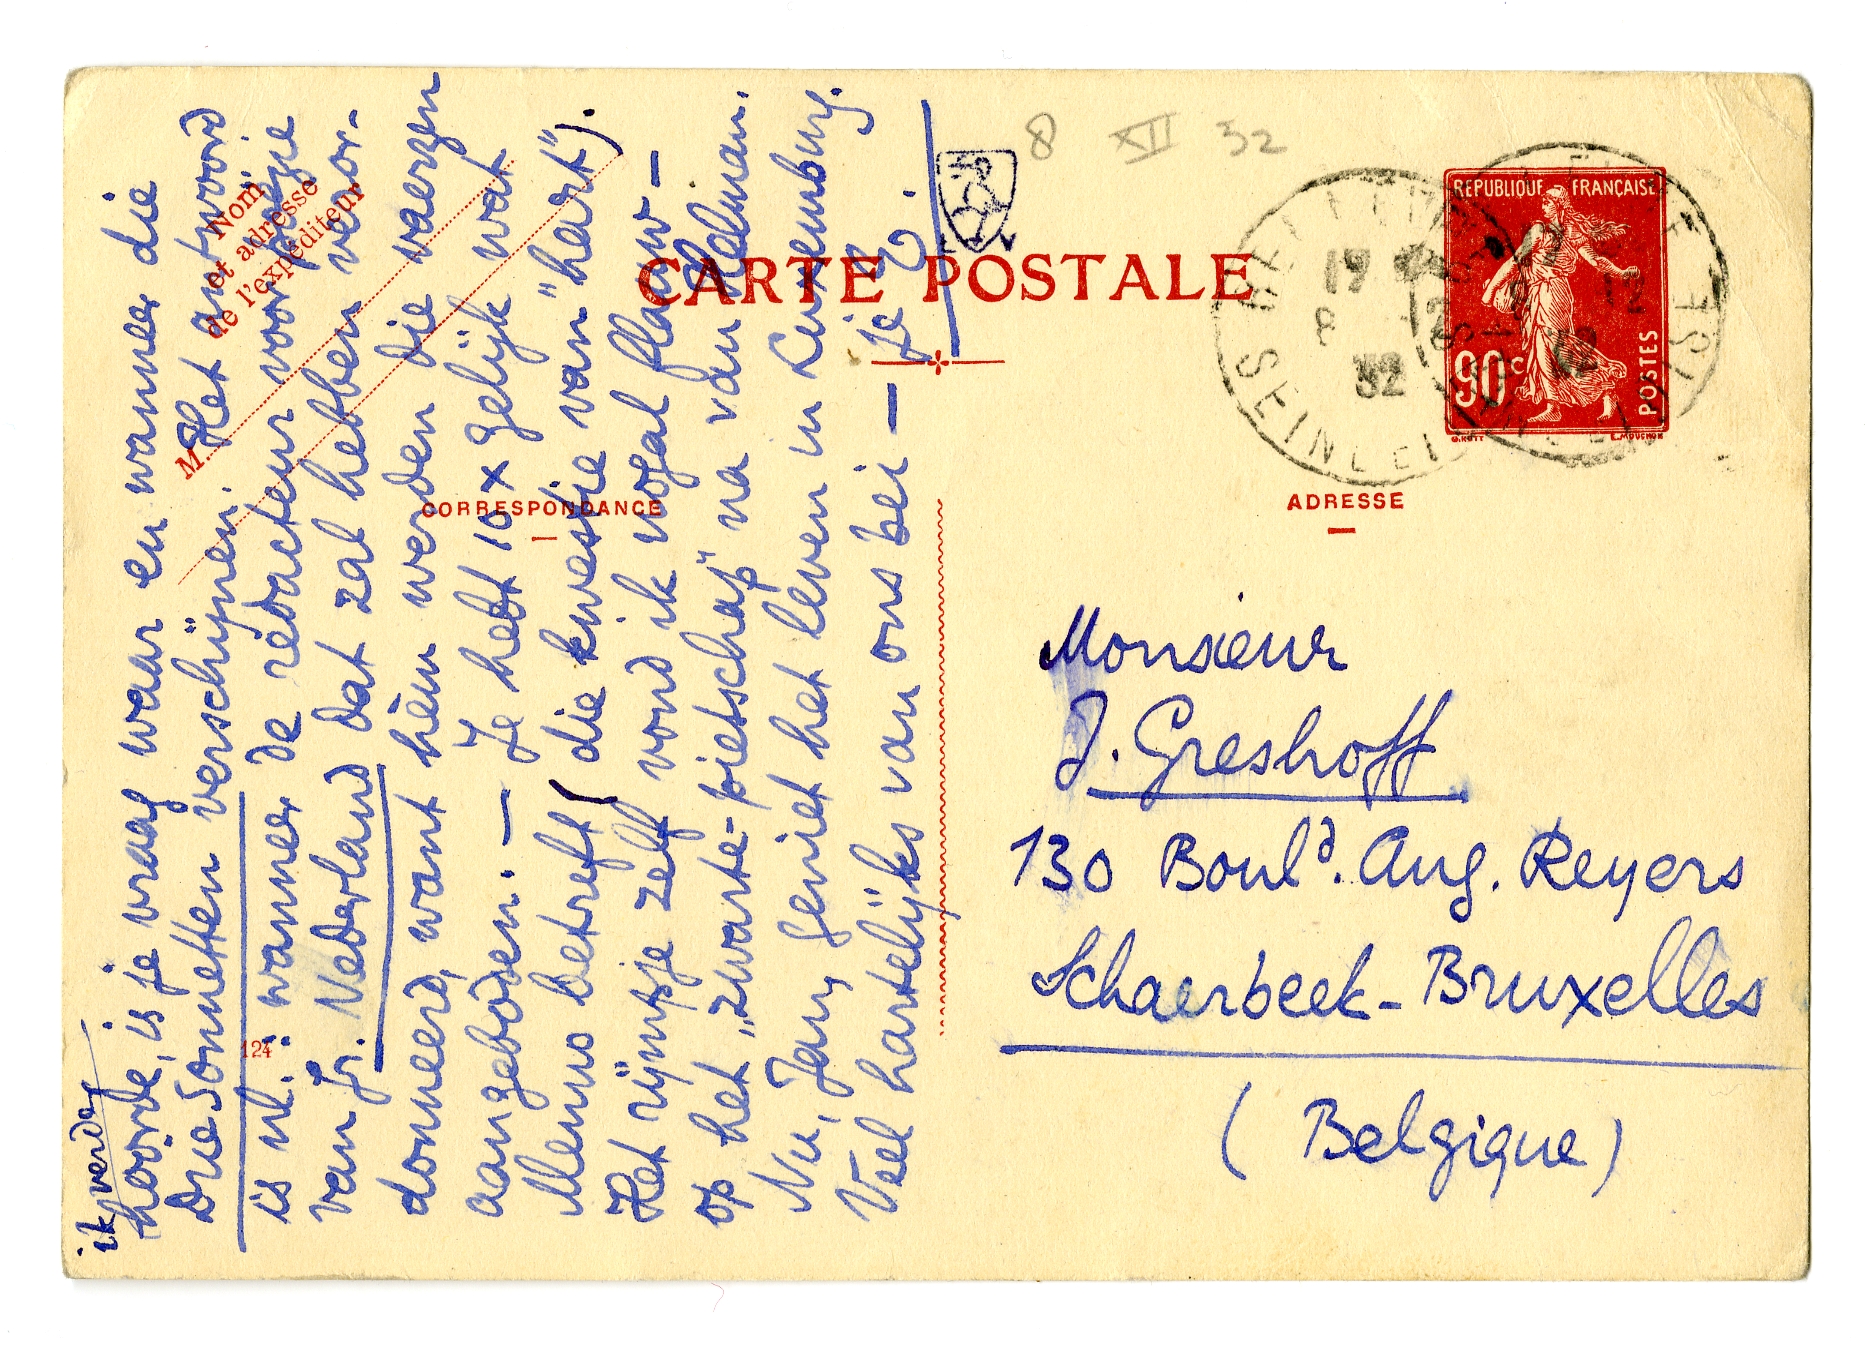 8 XII 32
REPUBLIQUE FRANÇAISE
90c
POSTES
CARTE POSTALE
Nom
et adresse
de l'expéditeur
M.
CORRESPONDANCE
ADRESSE
124
ik verder
hoorde, is je vraag waar en wanneer die
drie sonnetten verschijnen. Het antwoord
is nl.: wanneer de rédacteur voor poëzie
van Gr. Nederland dat zal hebben veror-
donneerd, want hèm werden die vaerzen
aangebóden. — Je hebt 10 x gelijk wat
Menno betreft (die kwestie van "hart").
Het rijmpje zelf vond ik nogal flauw —
op het „zwarte-pietschap" na van Helman.
Nu, Jan, geniet het leven in Luxemburg.
Veel hartelijks van ons bei — je
E.
Monsieur
J. Greshoff
130 Boul<sup>d</sup>. Aug. Reyers
Schaerbeek - Bruxelles
(Belgique)